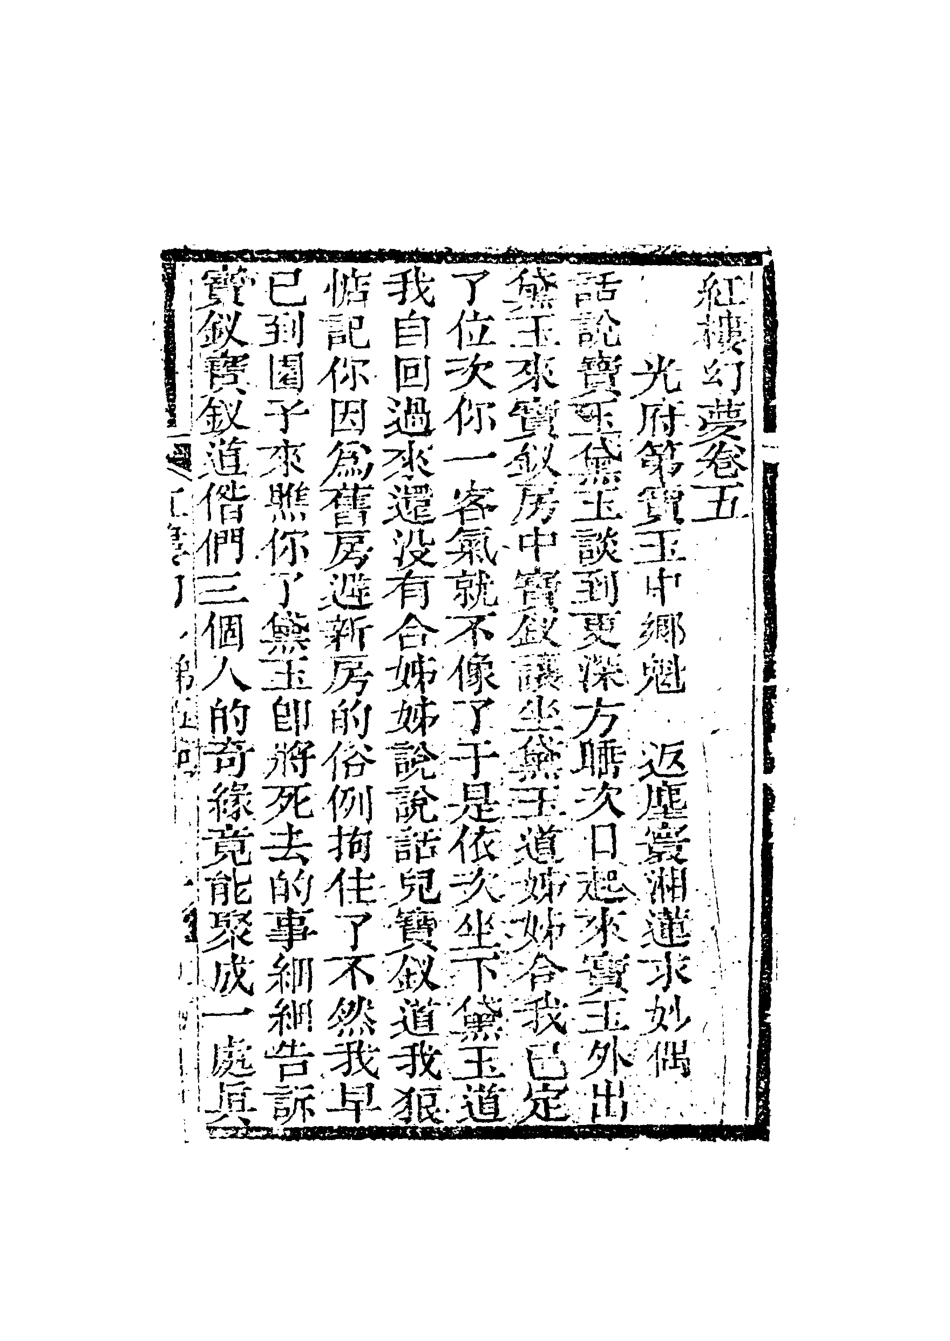 紅樓幻夢卷五
光府第寶玉中鄉魁　返塵寰湘蓮求妙偶
話說寶玉黛玉談到更深方睡次日起來寶玉外出
黛玉來寶釵房中寶釵讓坐黛玉道姊姊合我已定
了位次你一客氣就不像了于是依次坐下黛玉道
我自回過來還没有合姊姊說說話兒寶釵道我狠
惦記你因爲舊房遷新房的俗例拘住了不然我早
已到園子來瞧你了黛玉即將死去的事細細告訴
寶釵寶釵道偺們三個人的奇緣竟能聚成一處真